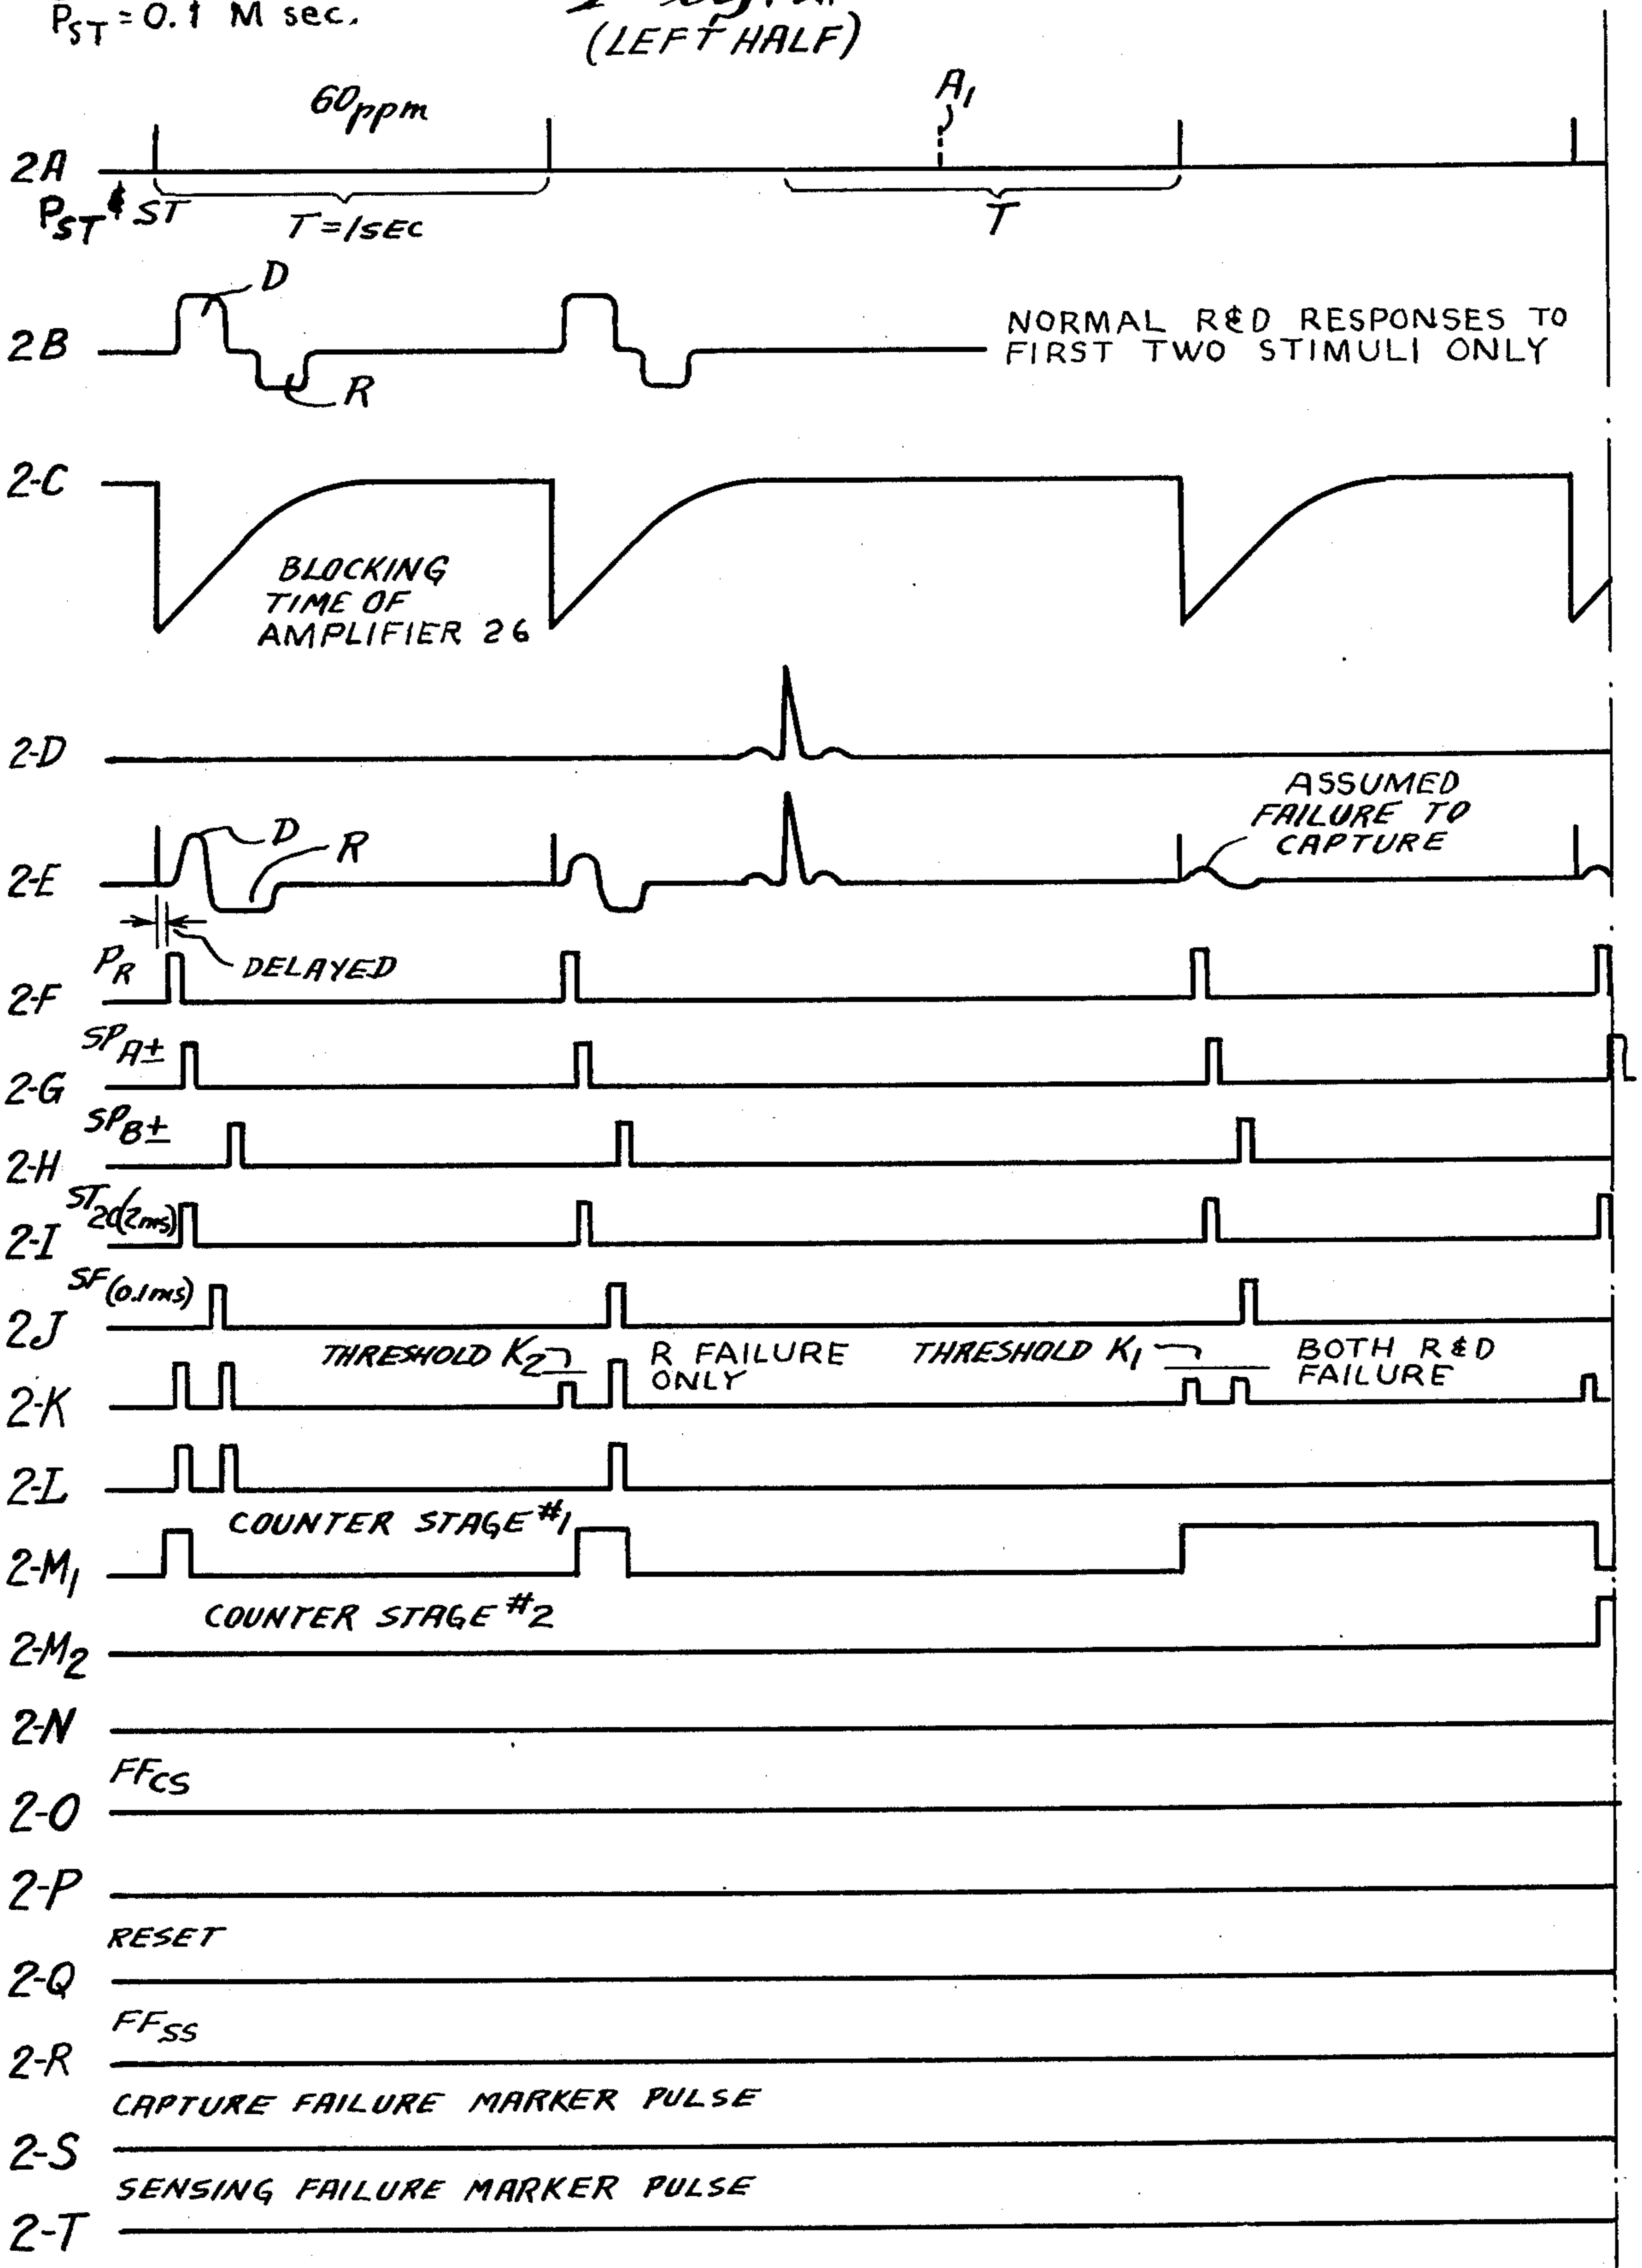 P_ST = 0.1 M sec.
(LEFT HALF)
60 ppm
A1
2A
P_ST & ST
T=1SEC
T
D
2B
R
NORMAL R&D RESPONSES TO
FIRST TWO STIMULI ONLY
2-C
BLOCKING
TIME OF
AMPLIFIER 26
2-D
ASSUMED
FAILURE TO
CAPTURE
D
R
2-E
P_R
DELAYED
2-F
SP_A±
2-G
SP_B±
2-H
ST_2C(2ms)
2-I
SF(0.1ms)
2J
THRESHOLD K2
R FAILURE
ONLY
THRESHOLD K1
BOTH R&D
FAILURE
2-K
2-L
COUNTER STAGE #1
2-M1
COUNTER STAGE #2
2-M2
2-N
FF_CS
2-O
2-P
RESET
2-Q
FF_SS
2-R
CAPTURE FAILURE MARKER PULSE
2-S
SENSING FAILURE MARKER PULSE
2-T